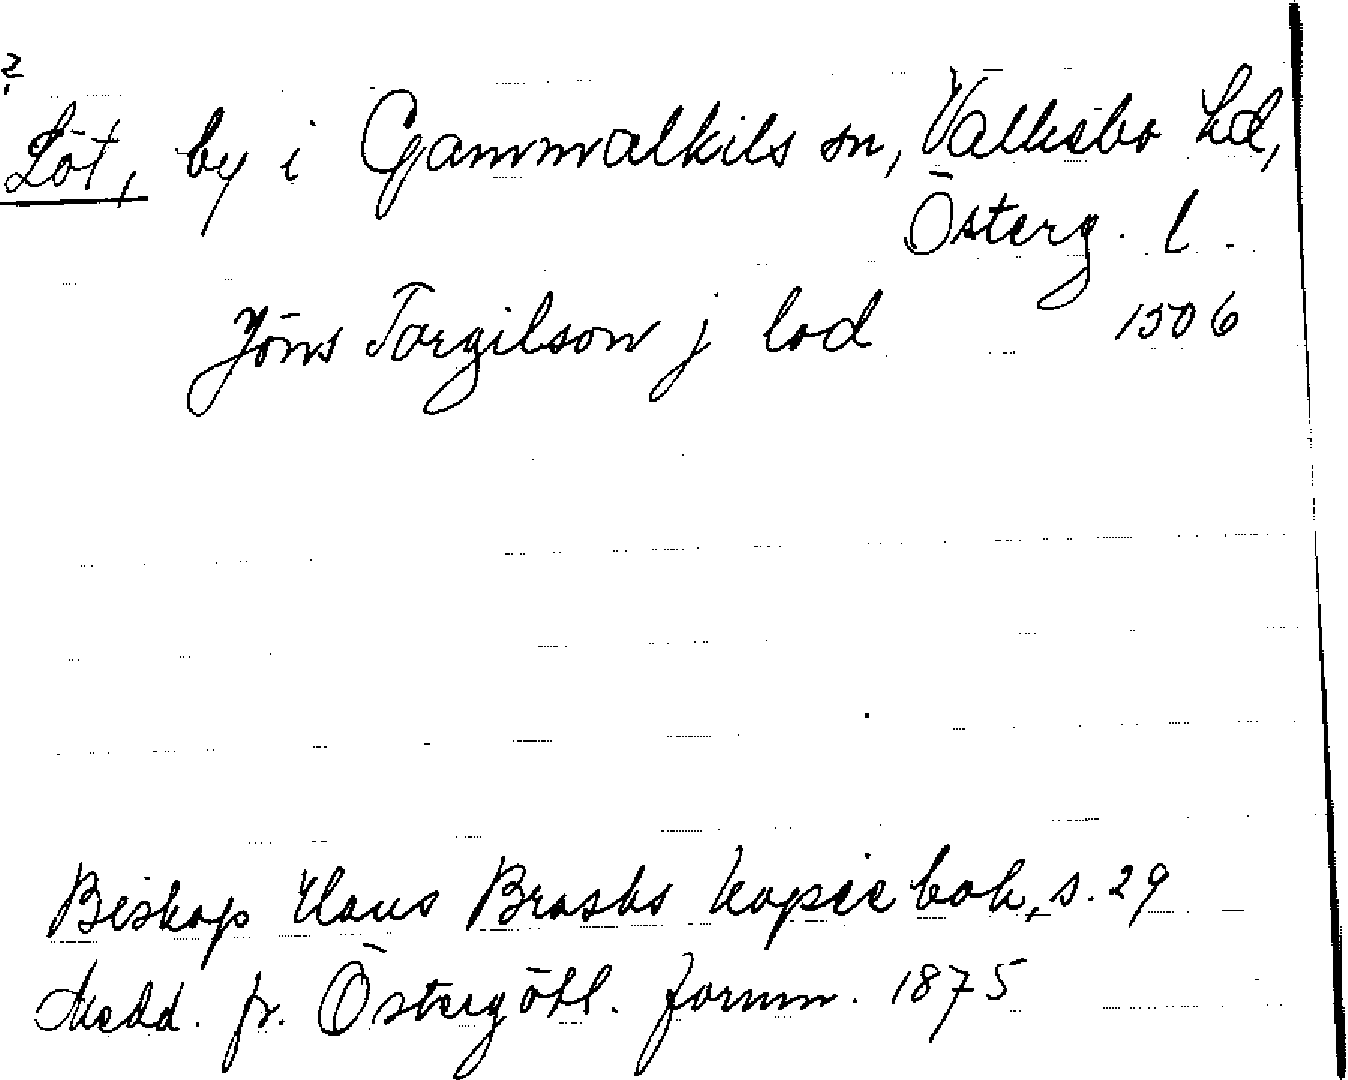 ?
Löt, by i Gammalkils sn, Valkebo hd,
Österg. l.
Jöns Torgilson j lod 1506
Biskop Hans Brasks kopiebok, s. 29
Medd. fr. Östergötl. fornm. 1875